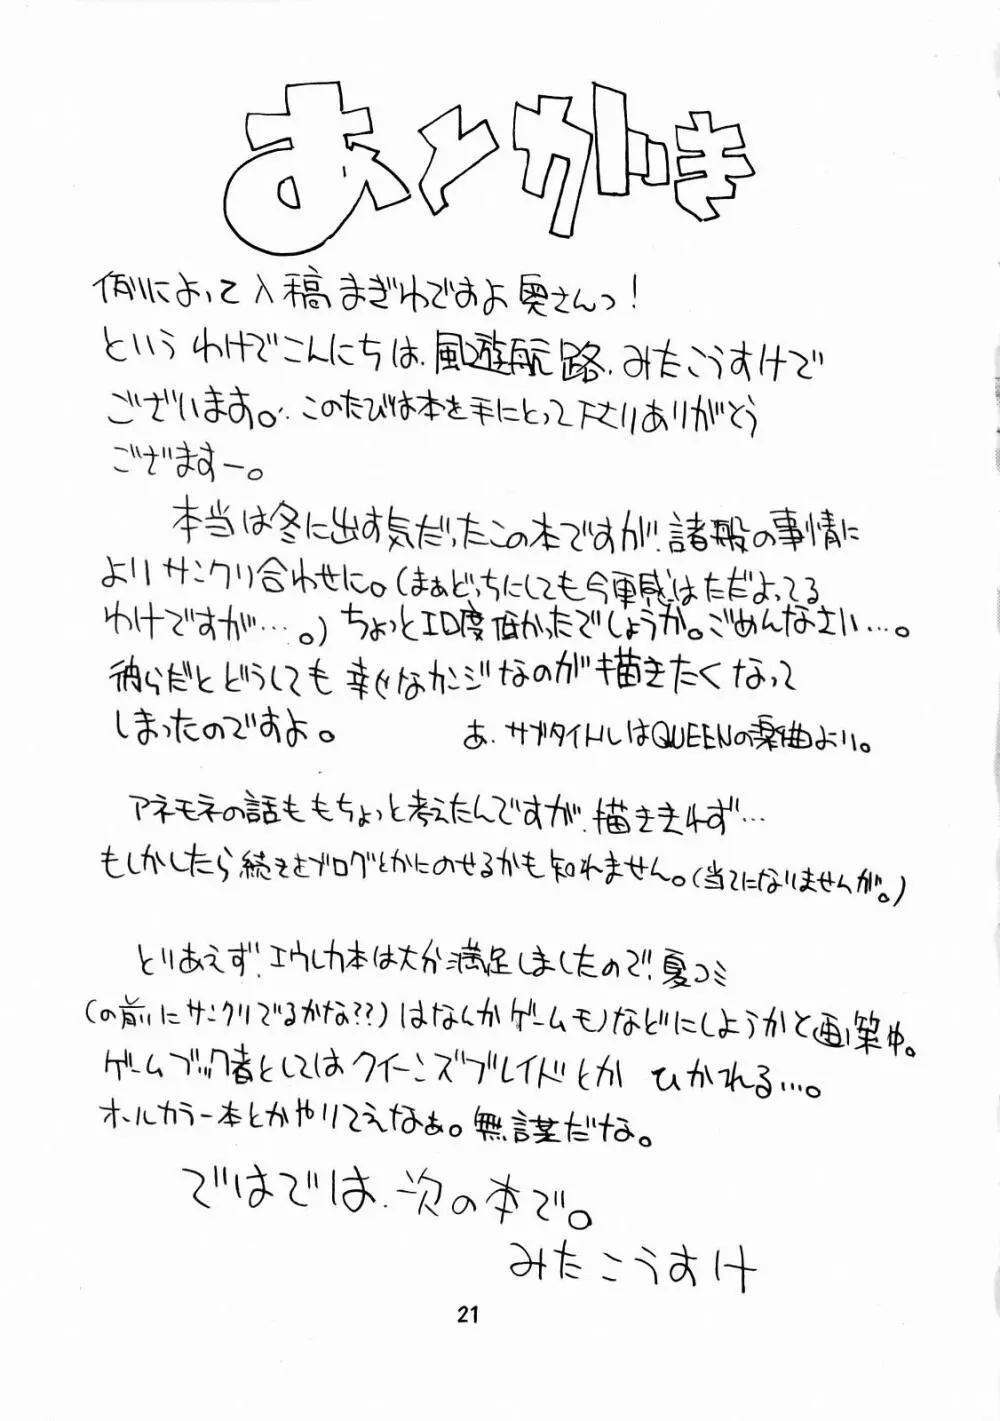 あとがき
例によって入稿まぎわですよ奥さんっ!
というわけでこんにちは、風遊航路、みたこうすけで
ございます。このたびは本を手にとって下さりありがとう
ござますー。
本当は冬に出す気だったこの本ですが、諸般の事情に
よりサンクリ合わせに。(まぁどっちにしても今更感はただよってる
わけですが…。)ちょっとエロ度低かったでしょうか。ごめんなさい…。
彼らだとどうしても幸せなカンジなのが描きたくなって
しまったのですよ。 あ、サブタイトルはQUEENの楽曲より。
アネモネの話ももちょっと考えたんですが、描ききれず…
もしかしたら続きをブログとかにのせるかも知れません。(当てになりませんが。)
とりあえず、エウレカ本は大分満足しましたので、夏コミ
(の前にサンクリでるかな??)はなんかゲームモノなどにしようかと画策中。
ゲームブック者としてはクイーンズブレイドとか ひかれる…。
オールカラー本とかやりてえなぁ。無謀だな。
ではでは、次の本で。
みたこうすけ
21